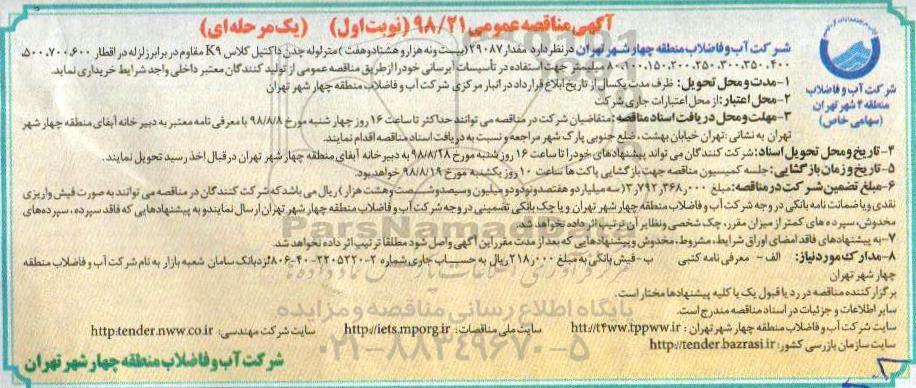 آگهی مناقصه عمومی ۹۸/۲۱ (نوبت اول) (یک مرحله ای)
شرکت آب و فاضلاب منطقه ۴ شهر تهران (سهامی خاص)
شرکت آب و فاضلاب منطقه چهار شهر تهران در نظر دارد مقدار ۲۹۰۸۷ (بیست ونه هزار و هشتاد و هفت) متر لوله چدن داکتیل کلاس K۹ مقاوم در برابر زلزله در اقطار ۶۰۰، ۷۰۰، ۵۰۰،
۴۰۰، ۳۵۰، ۳۰۰، ۲۵۰، ۲۰۰، ۱۵۰، ۱۰۰، ۸۰ میلیمتر جهت استفاده در تأسیسات آبرسانی خود را از طریق مناقصه عمومی از تولید کنندگان معتبر داخلی واجد شرایط خریداری نماید.
۱- مدت و محل تحویل: ظرف مدت یکسال از تاریخ ابلاغ قرارداد در انبار مرکزی شرکت آب و فاضلاب منطقه چهار شهر تهران
۲- محل اعتبار: از محل اعتبارات جاری شرکت
۳- مهلت و محل دریافت اسناد مناقصه: متقاضیان شرکت در مناقصه می توانند حداکثر تا ساعت ۱۶ روز چهار شنبه مورخ ۹۸/۸/۸ با معرفی نامه معتبر به دبیر خانه آبفای منطقه چهار شهر
تهران به نشانی: تهران خیابان بهشت، ضلع جنوبی پارک شهر مراجعه و نسبت به دریافت اسناد مناقصه اقدام نمایند.
۴- تاریخ و محل تحویل اسناد: شرکت کنندگان می تواند پیشنهادهای خود را تا ساعت ۱۶ روز شنبه مورخ ۹۸/۸/۱۸ به دبیر خانه آبفای منطقه چهار شهر تهران در قبال اخذ رسید تحویل نمایند.
۵- تاریخ و زمان بازگشایی: جلسه کمیسیون مناقصه جهت بازگشایی پاکت ها ساعت ۱۰ روز یکشنبه مورخ ۹۸/۸/۱۹ خواهد بود.
۶- مبلغ تضمین شرکت در مناقصه: مبلغ ۱۳٫۷۹۲٫۳۶۸٫۰۰۰ (سیزده میلیارد و هفتصد و نود و دو میلیون و سیصد و شصت و هشت هزار) ریال می باشد که شرکت کنندگان در مناقصه می توانند به صورت فیش واریزی
نقدی و یا ضمانت نامه بانکی در وجه شرکت آب و فاضلاب منطقه چهار شهر تهران و یا چک بانکی تضمینی در وجه شرکت آب و فاضلاب منطقه چهار شهر تهران ارسال نمایند و به پیشنهادهایی که فاقد سپرده، سپرده های
مخدوش، سپرده های کمتر از میزان مقرر، چک شخصی و نظایر آن ترتیب اثر داده نخواهد شد.
۷- به پیشنهادهای فاقد امضای اوراق شرایط، مشروط، مخدوش و پیشنهادهایی که بعد از مدت مقرر این آگهی واصل شود مطلقا ترتیب اثر داده نخواهد شد.
۸- مدارک مورد نیاز: الف - معرفی نامه کتبی ب - فیش بانکی به مبلغ ۲۱۸٫۰۰۰ ریال به حساب جاری شماره ۲-۲۲۰۵۲۲۰-۴۰-۸۰۶ نزد بانک سامان شعبه بازار به نام شرکت آب و فاضلاب منطقه
چهار شهر تهران
برگزار کننده مناقصه در رد یا قبول یک یا کلیه پیشنهادها مختار است.
سایر اطلاعات و جزئیات در اسناد مناقصه مندرج است.
سایت شرکت آب و فاضلاب منطقه چهار شهر تهران: htt://t۴ww.tpww.ir سایت ملی مناقصات: http://iets.mporg.ir سایت شرکت مهندسی: http:tender.nww.co.ir
سایت سازمان بازرسی کشور: http://tender.bazrasi.ir
شرکت آب و فاضلاب منطقه چهار شهر تهران
ParsNamadData
پایگاه اطلاع رسانی مناقصه و مزایده
۰۲۱-۸۸۳۴۹۶۷۰-۵